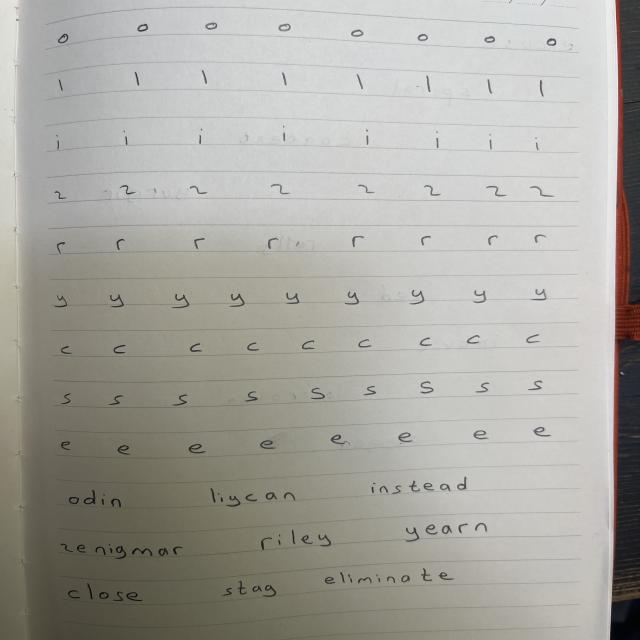 o o o o o o o o
l l l l l l l l
i i i i i i i i
z z z z z z z z
r r r r r r r r
y y y y y y y y y
c c c c c c c c c
s s s s s s s s s
e e e e e e e e
odin liycan instead
zenigmar riley yearn
close stag eliminate